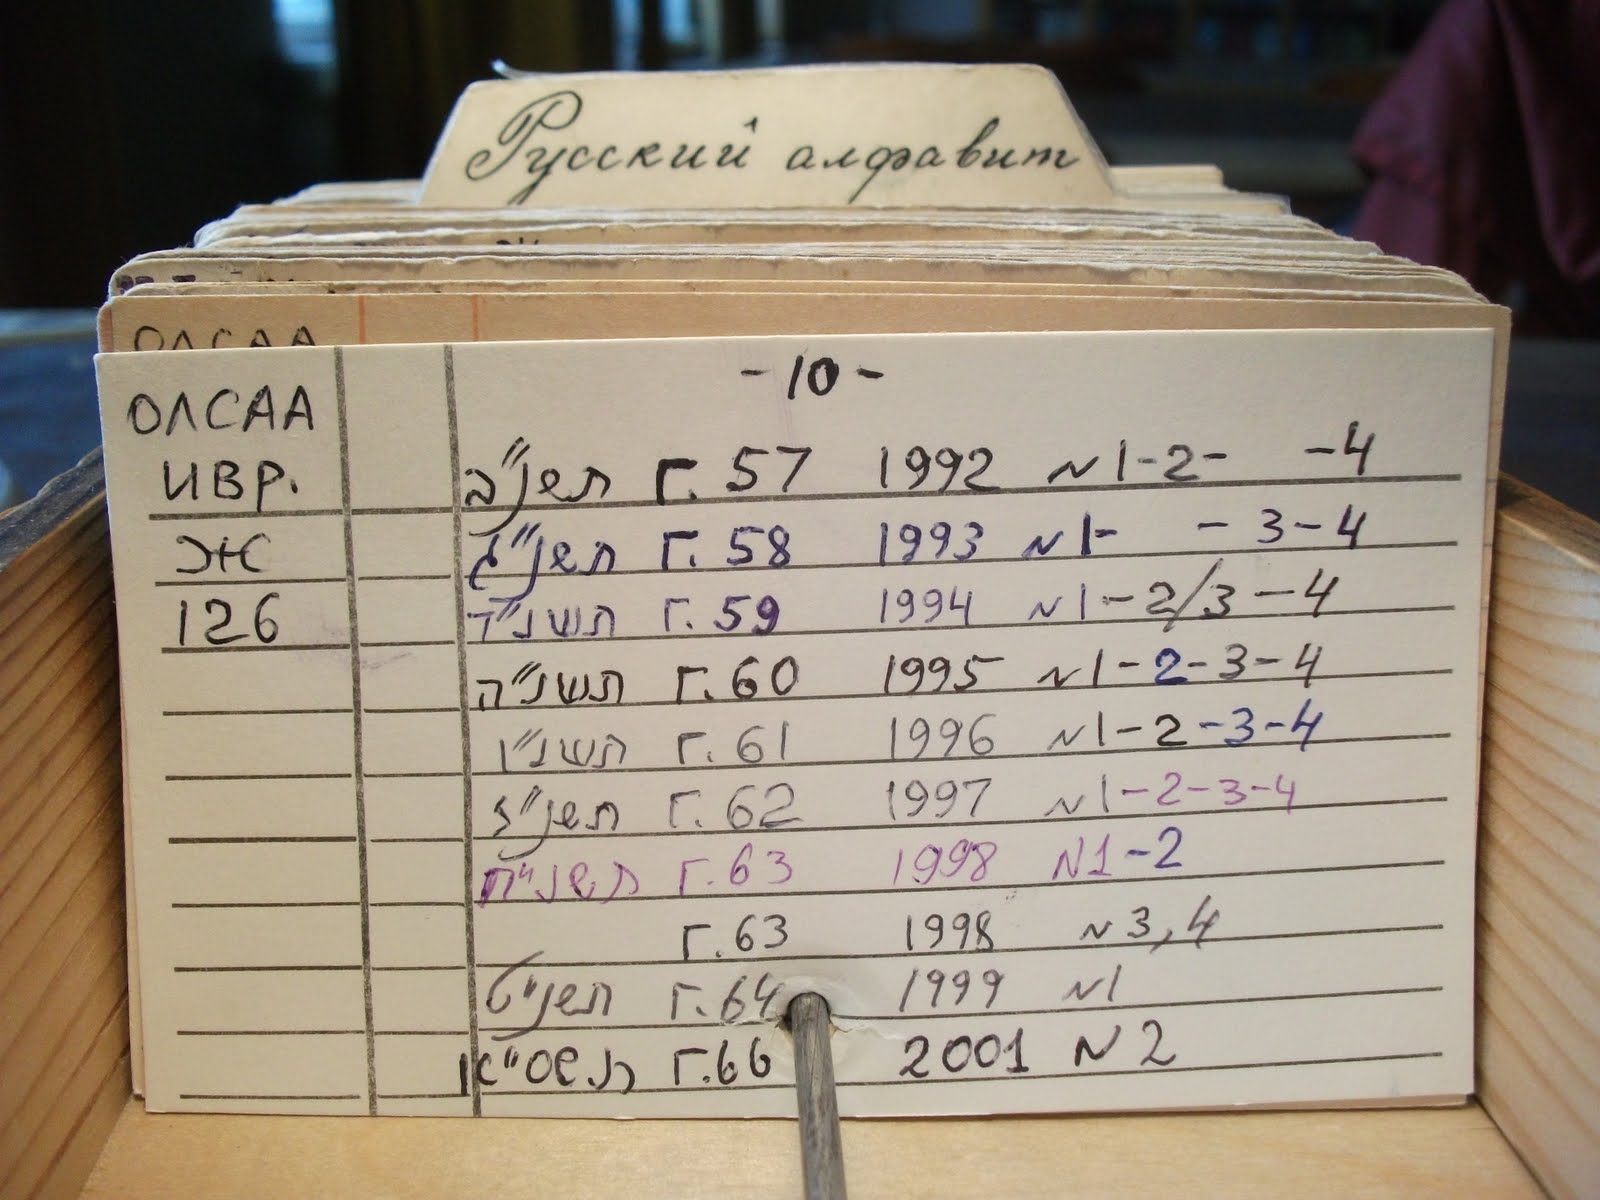 Русский алфавит
ОЛСАА
- 10 -
ОЛСАА
ИВР.
Ж
126
תשנ״ב Г. 57 1992 №1-2- -4
תשנ״ג Г. 58 1993 №1- - 3-4
תשנ״ד Г. 59 1994 №1-2/3-4
תשנ״ה Г. 60 1995 №1-2-3-4
תשנ״ו Г. 61 1996 №1-2-3-4
תשנ״ז Г. 62 1997 №1-2-3-4
תשנ״ח Г. 63 1998 №1-2
Г. 63 1998 №3,4
תשנ״ט Г. 64 1999 №1
תשס״א Г. 66 2001 №2